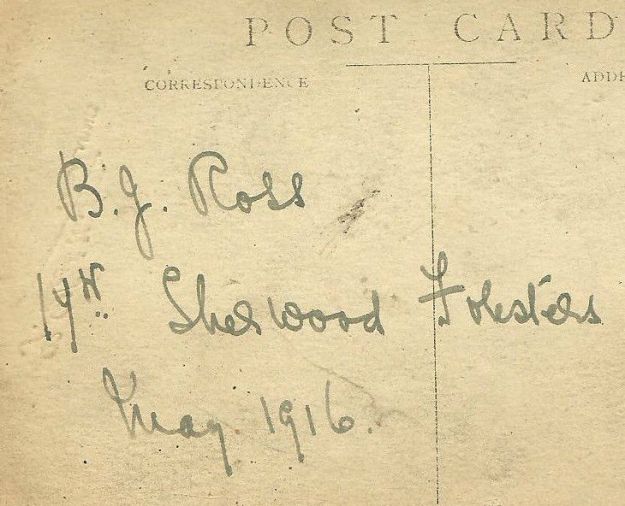 POST CARD
CORRESPONDENCE
ADDR
B. J. Ross
17th Sherwood Foresters
May 1916.